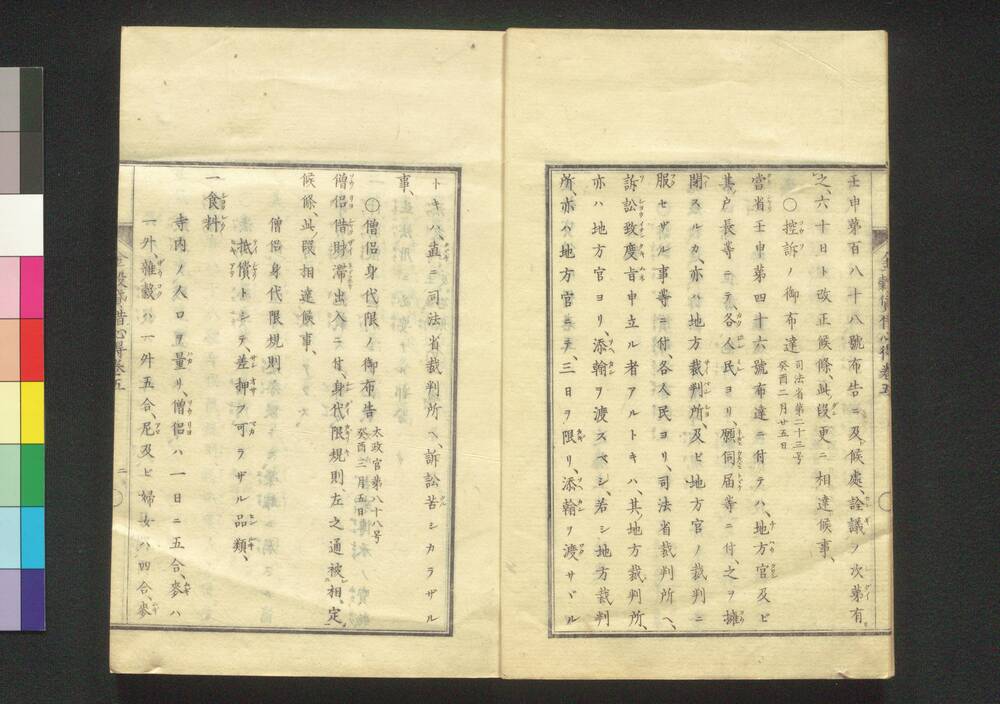 壬申第百八十八號布告ニ及ヒ候處、詮議ノ次第有
之、六十日ト改正候條、此段更ニ相達候事、
○控訴ノ御布達 司法省第二十三号 癸酉二月廿五日
當省壬申第四十六號布達ニ付テハ、地方官及ビ
其戸長等ニテ各人民ヨリ、願伺届等ニ付、之ヲ擁
閉スルカ、亦ハ地方裁判所、及ビ地方官ノ裁判ニ
服セザル事等ニ付、各人民ヨリ、司法省裁判所ヘ、
訴訟致度旨申立ル者アルトキハ、其地方裁判所、
亦ハ地方官ヨリ、添翰ヲ渡スベシ、若シ地方裁判
所、亦ハ地方官ニテ、三日ヲ限リ、添翰ヲ渡サヾル
トキハ、直ニ司法省裁判所ヘ、訴訟苦シカラザル
事、
○僧侶身代限ノ御布告 太政官第八十八号 癸酉三月五日
僧侶借財滞出入ニ付、身代限規則、左之通被相定
候條、此段相達候事、
僧侶身代限規則
抵償トシテ、差押フ可ラザル品類、
一食料
寺内ノ人口ヲ量リ、僧侶ハ一日ニ五合、麥ハ
一外雜穀ハ一外五合、尼及ビ婦女ハ四合、麥